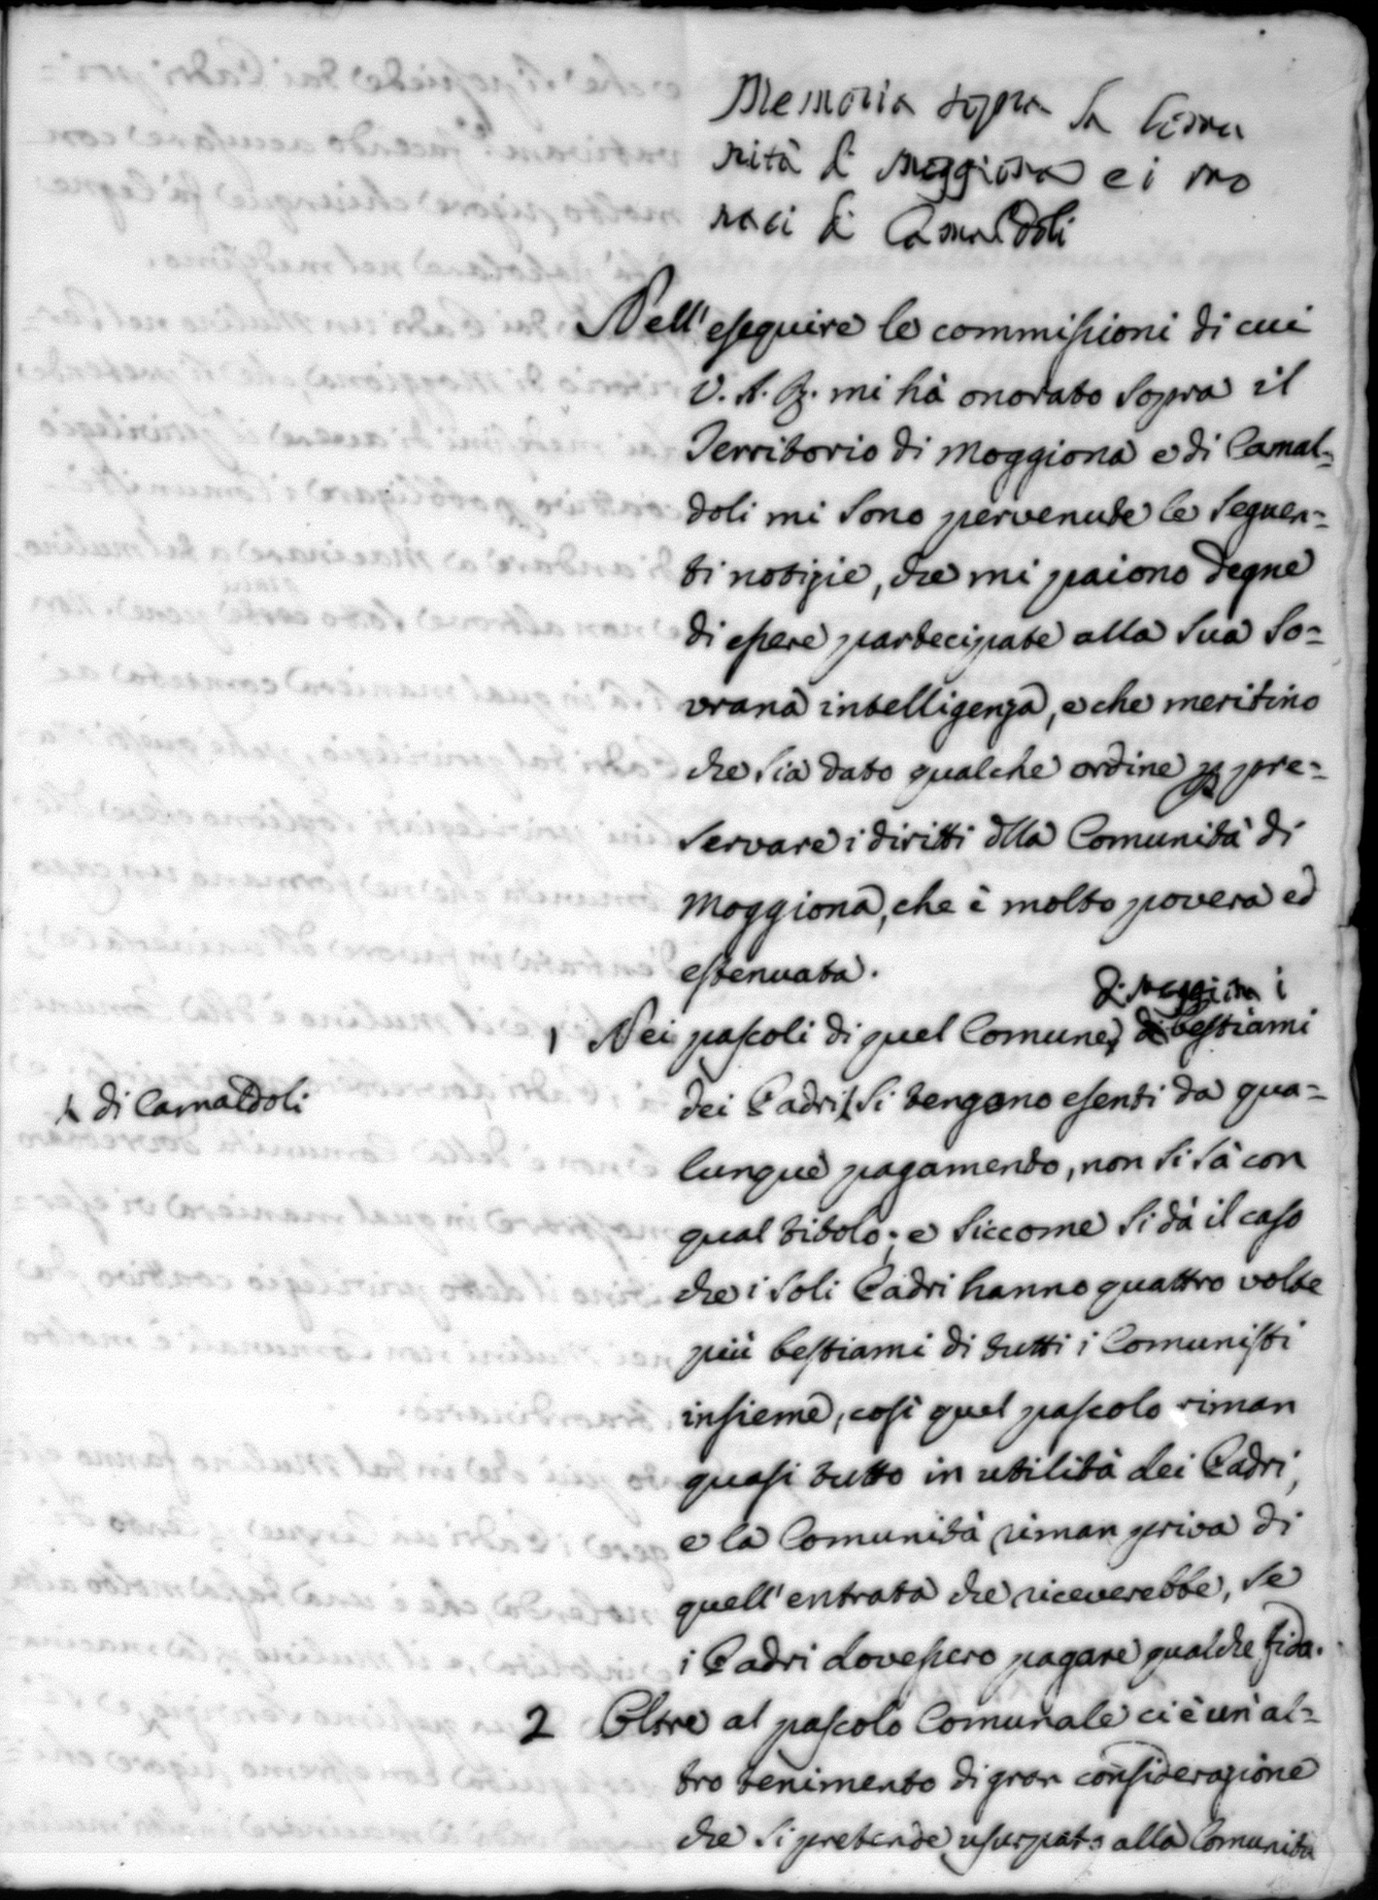 Memoria sopra la Comu
nità di Moggiona e i mo
naci di Camaldoli
Nell' eseguire le commissioni di cui
V. A. R. mi hà onorato sopra il
Territorio di Moggiona e di Camal=
doli mi sono pervenute le seguen=
ti notizie, che mi paiono degne
di essere partecipate alla sua So=
vrana intelligenza, e che meritino
che sia dato qualche ordine p pre=
servare i diritti dlla Comunità di
Moggiona, che è molto povera ed
estenuata.
di Moggiona i
1 Nei pascoli di quel Comune, bestiami
dei Padri si tengono esenti da qua=
di Camaldoli
lunque pagamento, non si sà con
qual titolo; e siccome si dà il caso
che i soli Padri hanno quattro volte
più bestiami di tutti i Comunisti
insieme, così quel pascolo riman
quasi tutto in utilità dei Padri,
e la Comunità riman priva di
quell' entrata che riceverebbe, se
i Padri dovessero pagare qualche fida.
2 Oltre al pascolo Comunale ci è un' al=
tro tenimento di gran considerazione
che si pretende usurpato alla Comunità